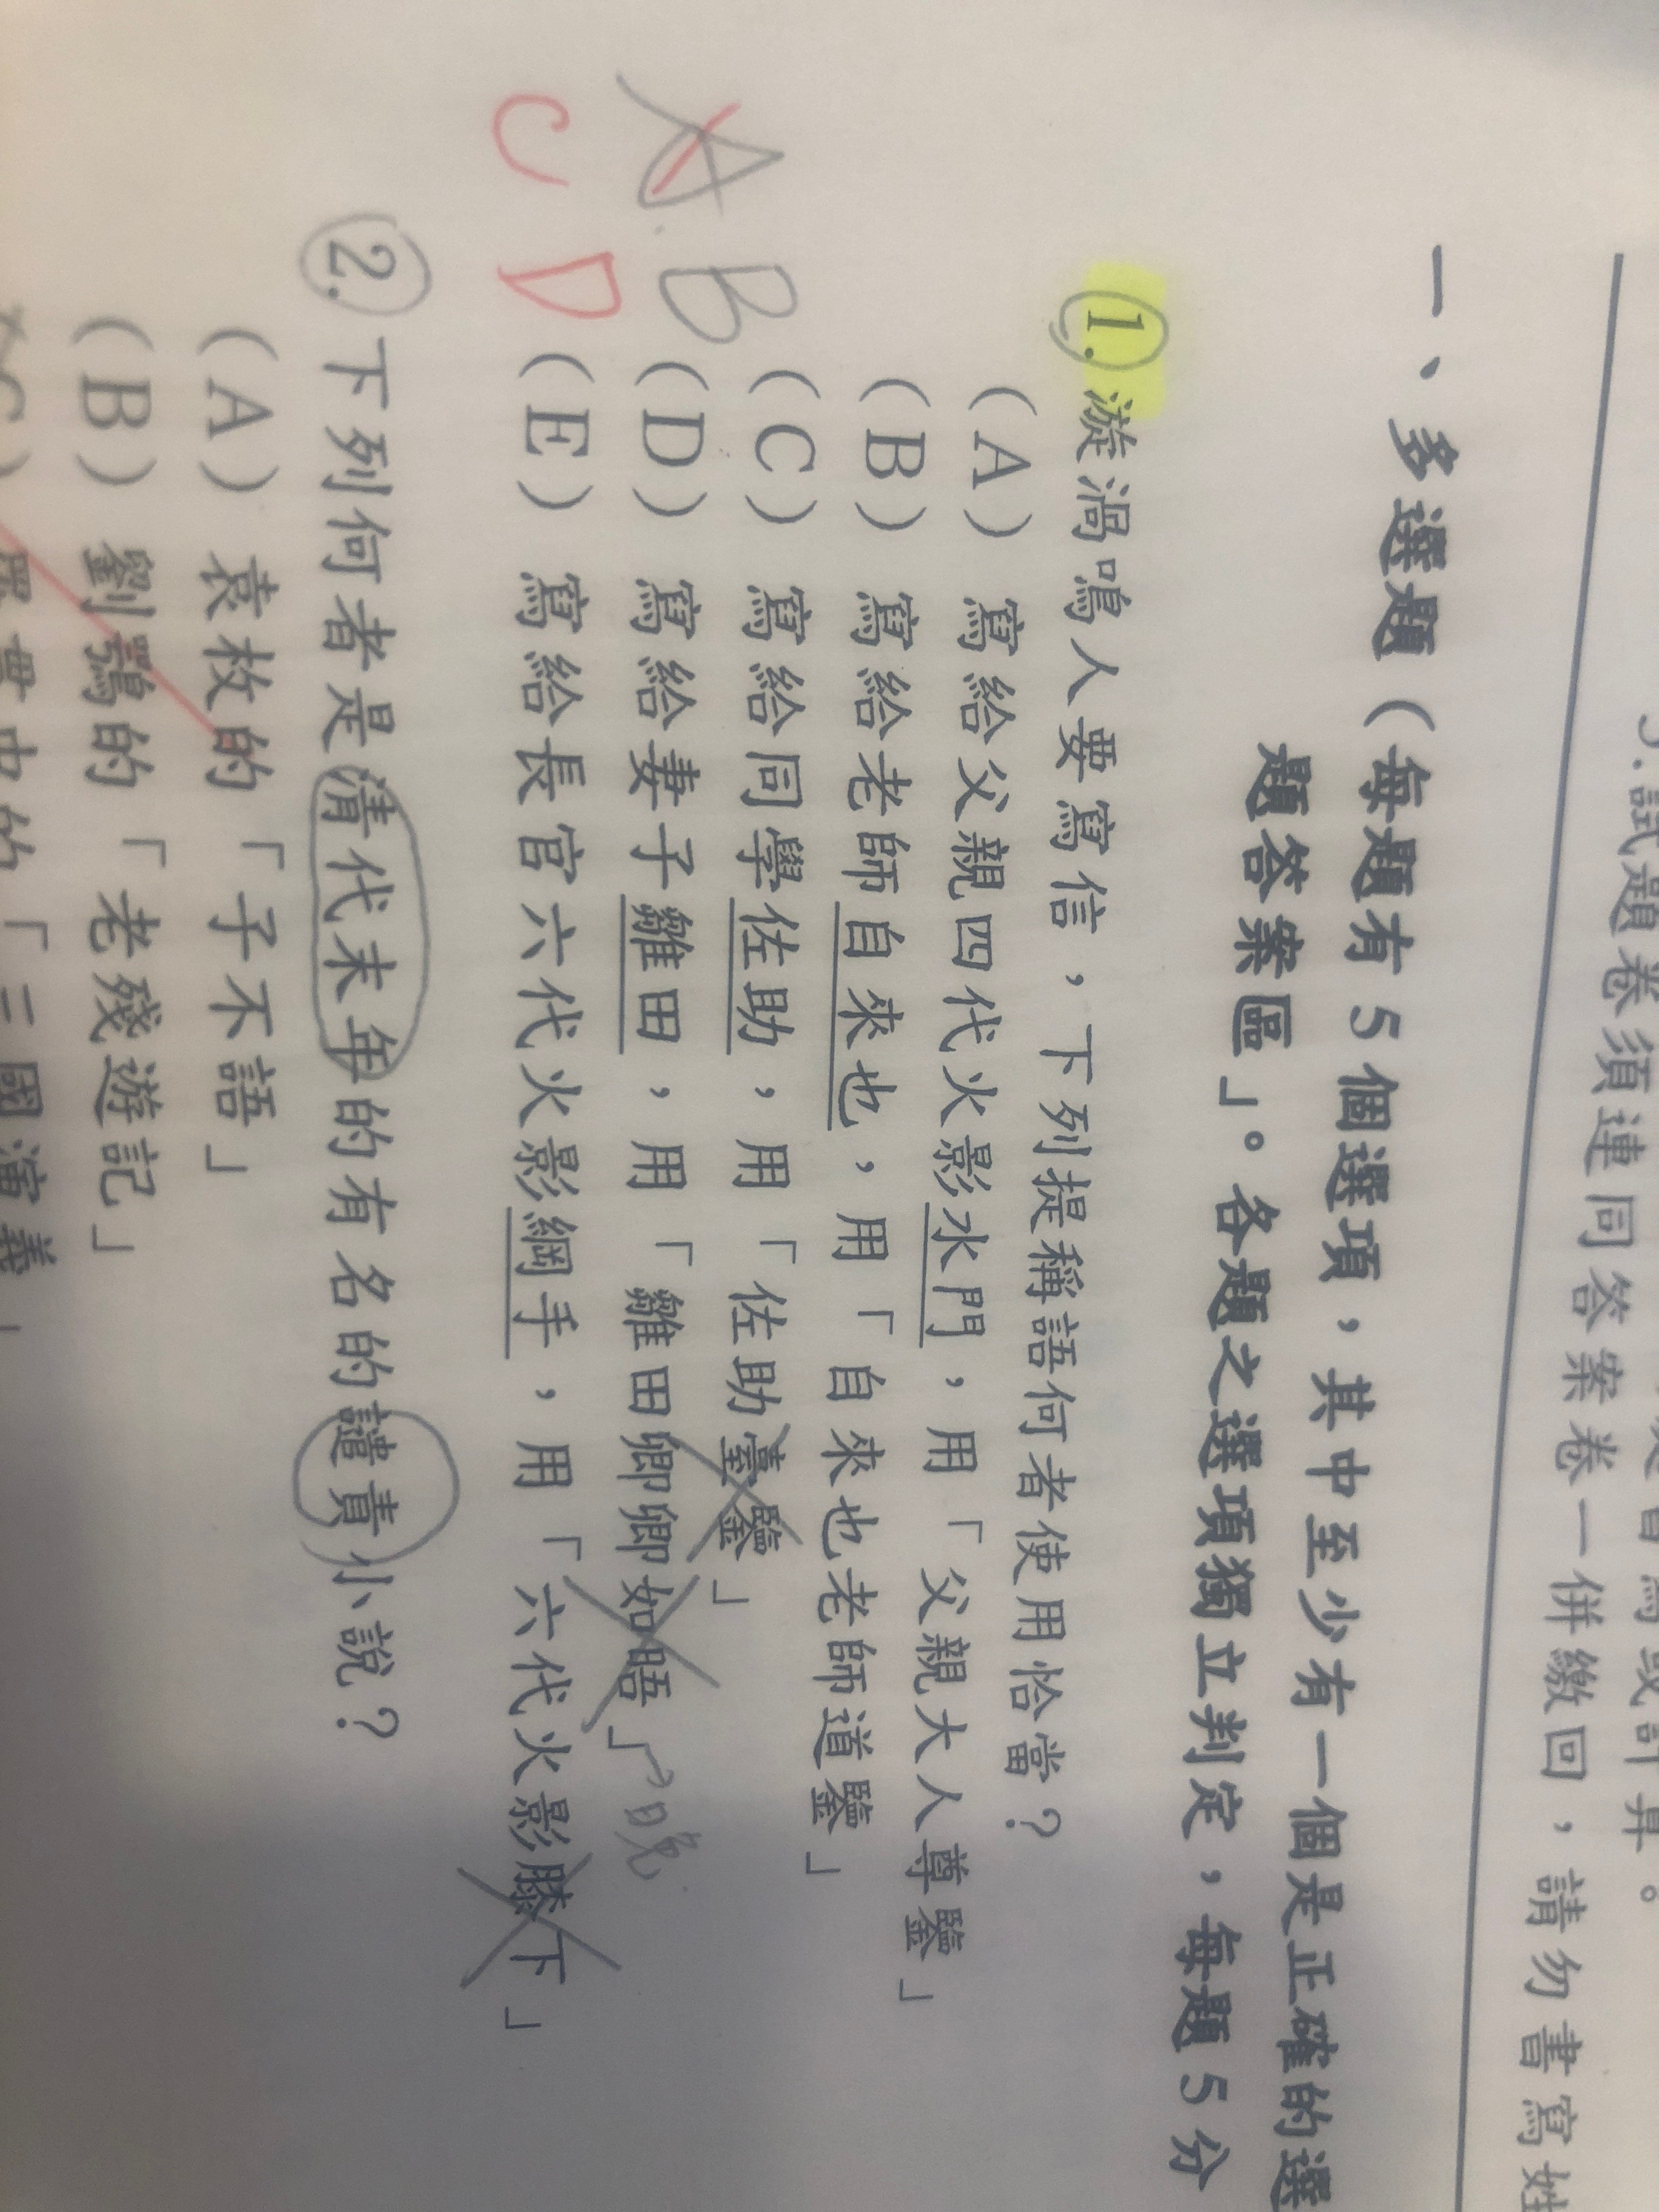 3.試題卷須連同答案卷一併繳回，請勿書寫姓
一、多選題（每題有5個選項，其中至少有一個是正確的選
題答案區」。各題之選項獨立判定，每題5分
1.漩渦鳴人要寫信，下列提稱語何者使用恰當？
（A）寫給父親四代火影水門，用「父親大人尊鑒」
（B）寫給老師自來也，用「自來也老師道鑒」
（C）寫給同學佐助，用「佐助臺鑒」
（D）寫給妻子雛田，用「雛田卿卿如晤」
晚
（E）寫給長官六代火影綱手，用「六代火影膝下」
A B
C D
2.下列何者是清代末年的有名的譴責小說？
（A）袁枚的「子不語」
（B）劉鶚的「老殘遊記」
（C）羅貫中的「三國演義」